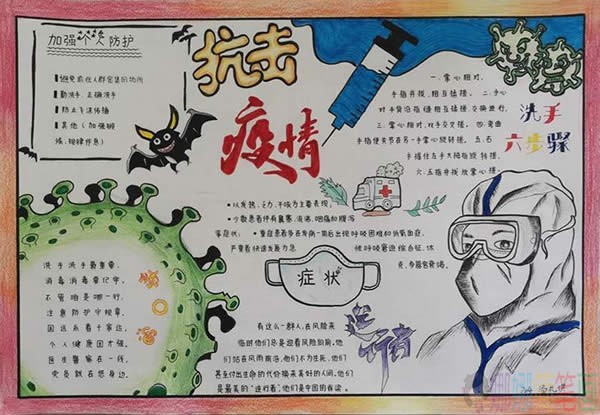 加强个人防护
避免前往人群密集的场所
勤洗手 正确洗手
防止飞沫传播
其他（加强锻
炼，规律作息）
抗击
疫情
一.掌心相对，
手指并拢，相互揉搓。二.手心
对手背沿指缝相互揉搓，交换进行。
三.掌心相对，双手交叉搓。四.弯曲
手指使关节在另一手掌心旋转揉搓。五.右
手握住左手大拇指旋转搓。
六.五指并拢放掌心搓。
洗手
六步骤
以发热、乏力、干咳为主要表现。
少数患者伴有鼻塞、流涕、咽痛和腹泻
等症状。
重症患者多在发病一周后出现呼吸困难和低氧血症，
严重者快速发展为急
性呼吸窘迫综合征、休
克、
症状
洗手洗手最重要，
消毒消毒要记牢。
不管咱是哪一行，
注意防护守规章，
医生警察在一线，
党员就在您身边。
逆行者
有这么一群人，在风险来
临时他们总是迎着风险向前，他
们站在风雨前沿，他们不为生死，他们
甚至付出生命的代价换来美好的人间，他们
是最美的“逆行者”，他们是中国的脊梁。